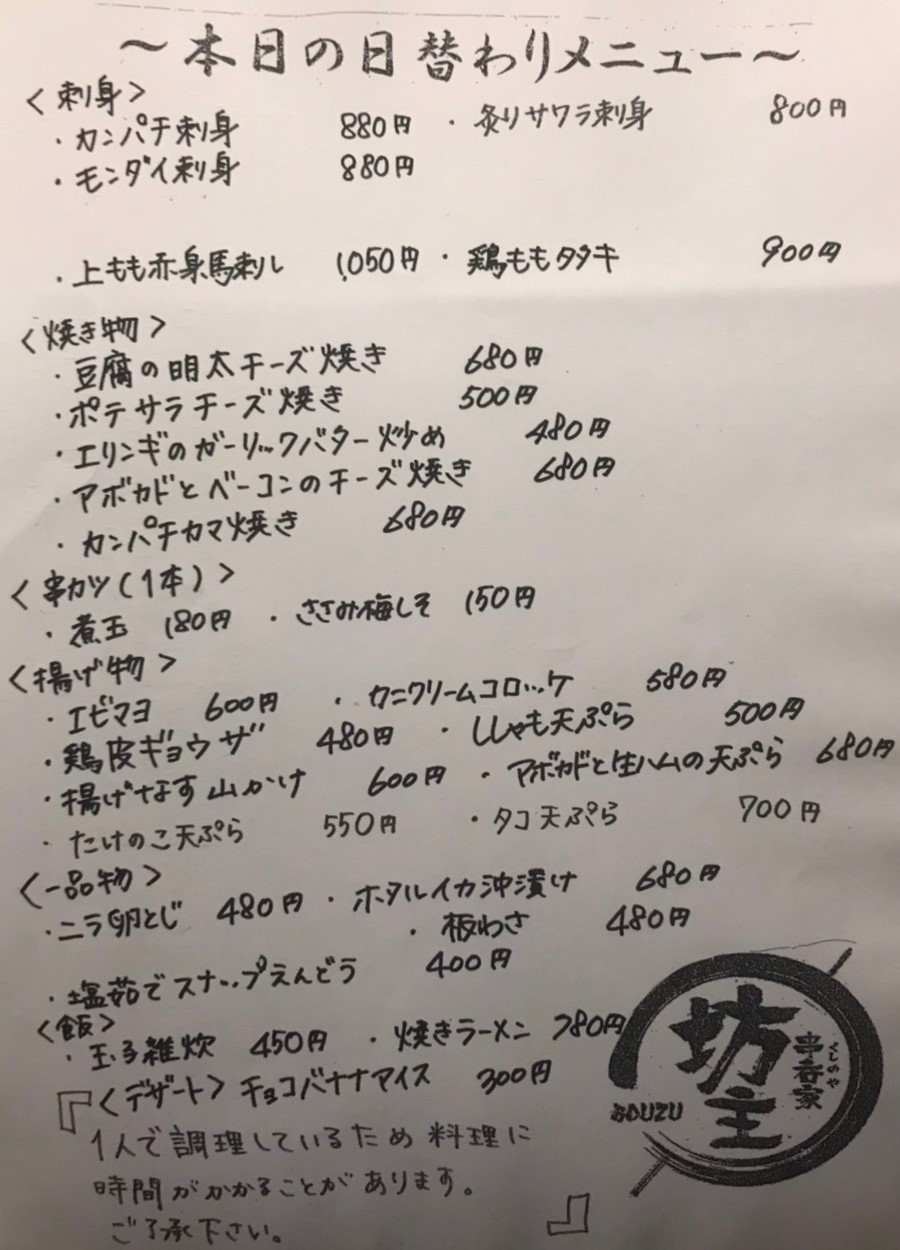 〜本日の日替わりメニュー〜
<刺身>
・カンパチ刺身 880円 ・炙りサワラ刺身 800円
・モンダイ刺身 880円
・上もも赤身馬刺し 1,050円 ・鶏ももタタキ 900円
<焼き物>
・豆腐の明太チーズ焼き 680円
・ポテサラチーズ焼き 500円
・エリンギのガーリックバター炒め 480円
・アボカドとベーコンのチーズ焼き 680円
・カンパチカマ焼き 680円
<串カツ(1本)>
・煮玉 180円 ・ささみ梅しそ 150円
<揚げ物>
・エビマヨ 600円 ・カニクリームコロッケ 580円
・鶏皮ギョウザ 480円 ・ししゃも天ぷら 500円
・揚げなす山かけ 600円 ・アボカドと生ハムの天ぷら 680円
・たけのこ天ぷら 550円 ・タコ天ぷら 700円
<一品物>
・ニラ卵とじ 480円 ・ホタルイカ沖漬け 680円
・板わさ 480円
・塩茹でスナップえんどう 400円
<飯>
・玉子雑炊 450円 ・焼きラーメン 780円
<デザート> チョコバナナアイス 300円
『1人で調理しているため料理に
時間がかかることがあります。
ご了承下さい。』
坊主
串呑家
くしのや
BOUZU